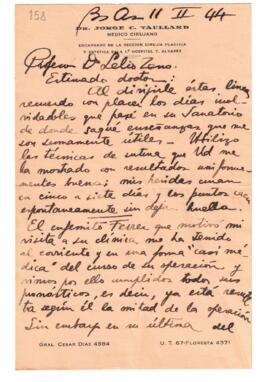 158
Bs As 11 II 44
DR. JORGE C. TAULLARD
MEDICO CIRUJANO
ENCARGADO DE LA SECCION CIRUJIA PLASTICA
Y ESTETICA DEL HOSPITAL T. ALVAREZ
Profesor Dr Lelio Zeno.
Estimado doctor:
Al dirigirle éstas lineas
recuerdo con placer los dias inol-
vidables que pasé en su Sanatorio
de donde saqué enseñanzas que me
son sumamente utiles. Utilizo
las técnicas de sutura que Ud me
ha mostrado con resultados uniforme-
mentes buenos; mis heridas curan
en cinco a siete dias y los puntos caen
espontaneamente sin dejar huella.
El enfermito Ferrer que motivó mi
visita a su clinica me ha tenido
al corriente y en una forma "casi mé-
dica" del curso de su operación y
vimos por ellos cumplidos todos sus
pronósticos, es decir, ya está
según él la mitad de la operación
Sin embargo en su última del
GRAL. CESAR DIAZ 4584
U. T. 67-FLORESTA 4371